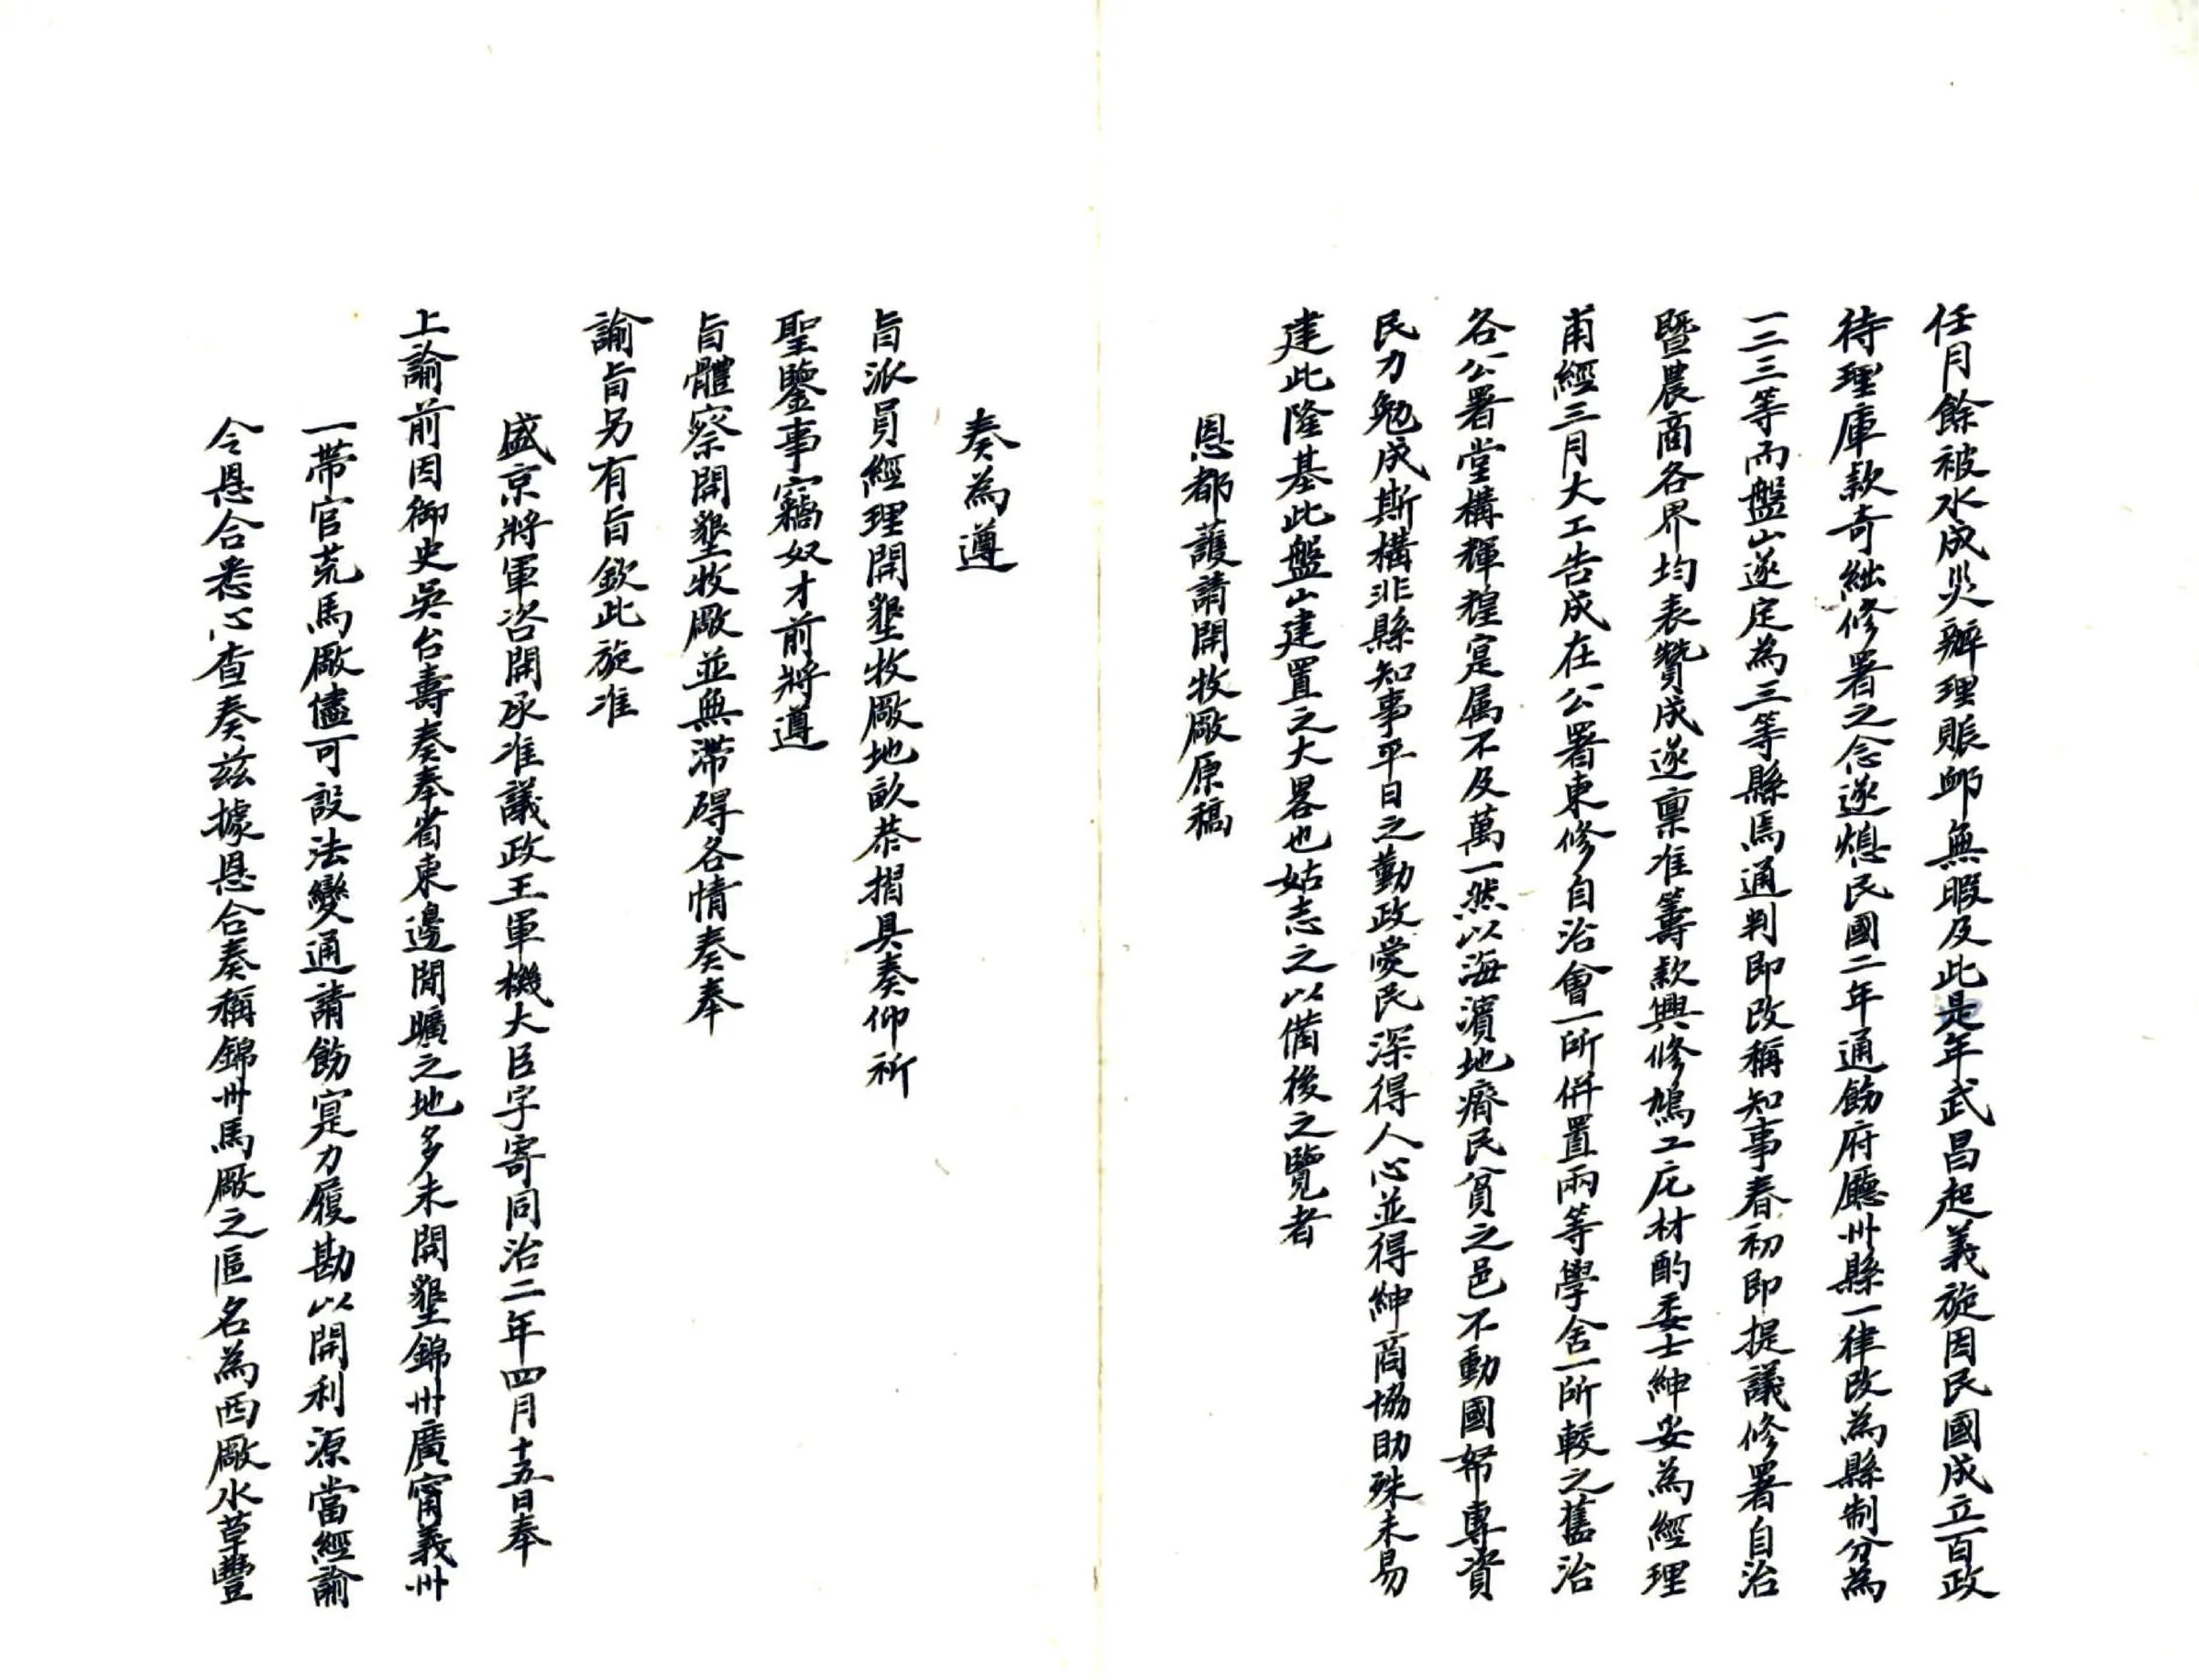 任月餘被水成災辦理賑卹無暇及此是年武昌起義旋因民國成立百政
待理庫款奇絀修署之念遂熄民國二年通飭府廳州縣一律改為縣制分為
一二三等而盤山遂定為三等縣馬通判即改稱知事春初即提議修署自治
暨農商各界均表贊成遂稟准籌款興修鳩工庀材酌委士紳妥為經理
甫經三月大工告成在公署東修自治會一所併置兩等學舍一所較之舊治
各公署堂構輝煌寔属不及萬一然以海濱地瘠民貧之邑不動國帑專資
民力勉成斯構非縣知事平日之勤政愛民深得人心並得紳商協助殊未易
建此隆基此盤山建置之大畧也姑志之以備後之覽者
恩都護請開牧廠原稿
奏為遵
旨派員經理開墾牧廠地畝恭摺具奏仰祈
聖鑒事竊奴才前將遵
旨體察開墾牧廠並無滯碍各情奏奉
諭旨另有旨欽此旋准
盛京將軍咨開承准議政王軍機大臣字寄同治二年四月十五日奉
上諭前因御史吳台壽奏奉省東邊閒曠之地多未開墾錦州廣甯義州
一帶官荒馬廠儘可設法變通請飭寔力履勘以開利源當經諭
令恩合悉心查奏茲據恩合奏稱錦州馬廠之區名為西廠水草豐